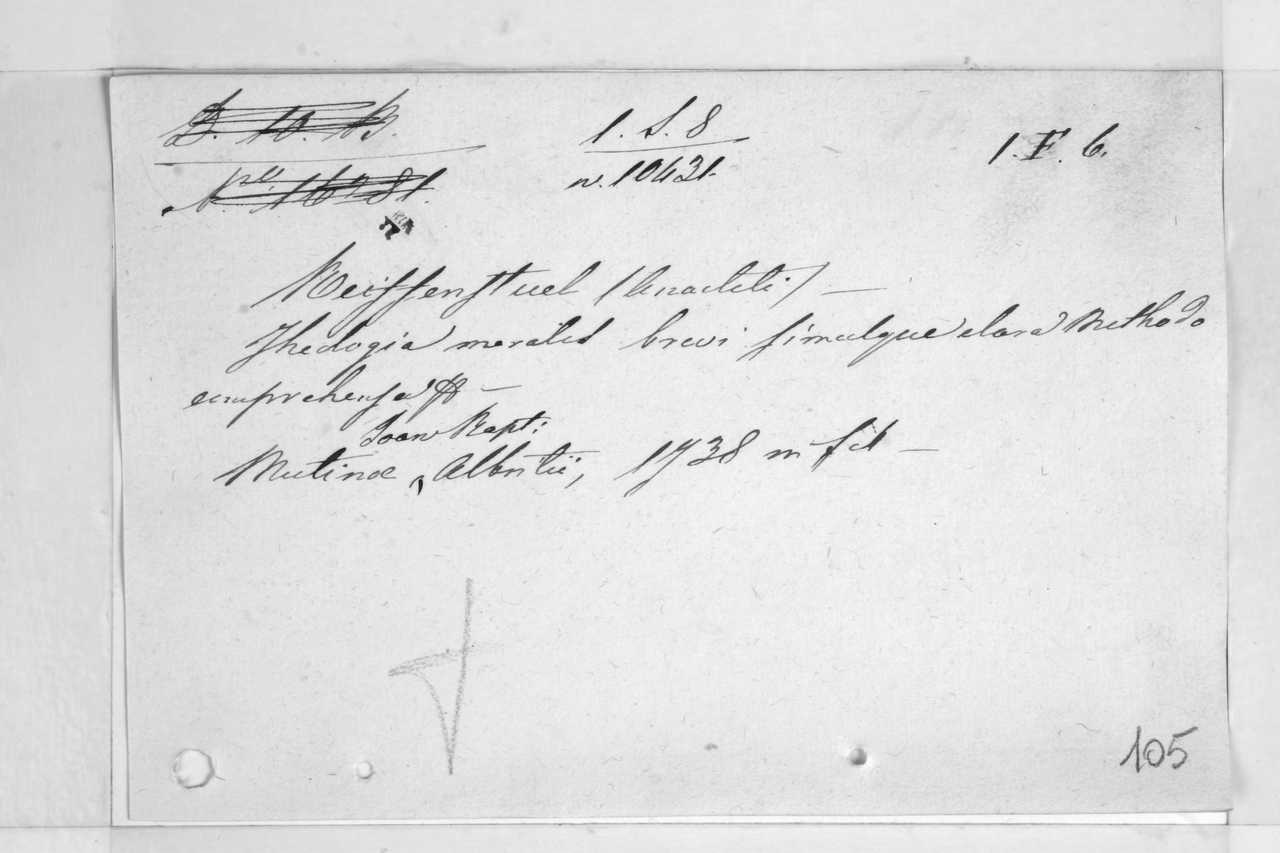 D. 10. B.
1. S. 8
1. F. 6.
n. 10431.
Reiffenstuel (Anacleti) —
Theologia moralis brevi simulque clara Methodo
comprehensa &
Joan Bapt:
Mutinae, Albritii, 1738 in fol —
105